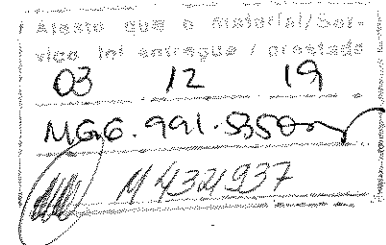 Atesto que o Material/Ser-
viço foi entregue / prestado
03 12 19
MG6.991.535
M 4321937